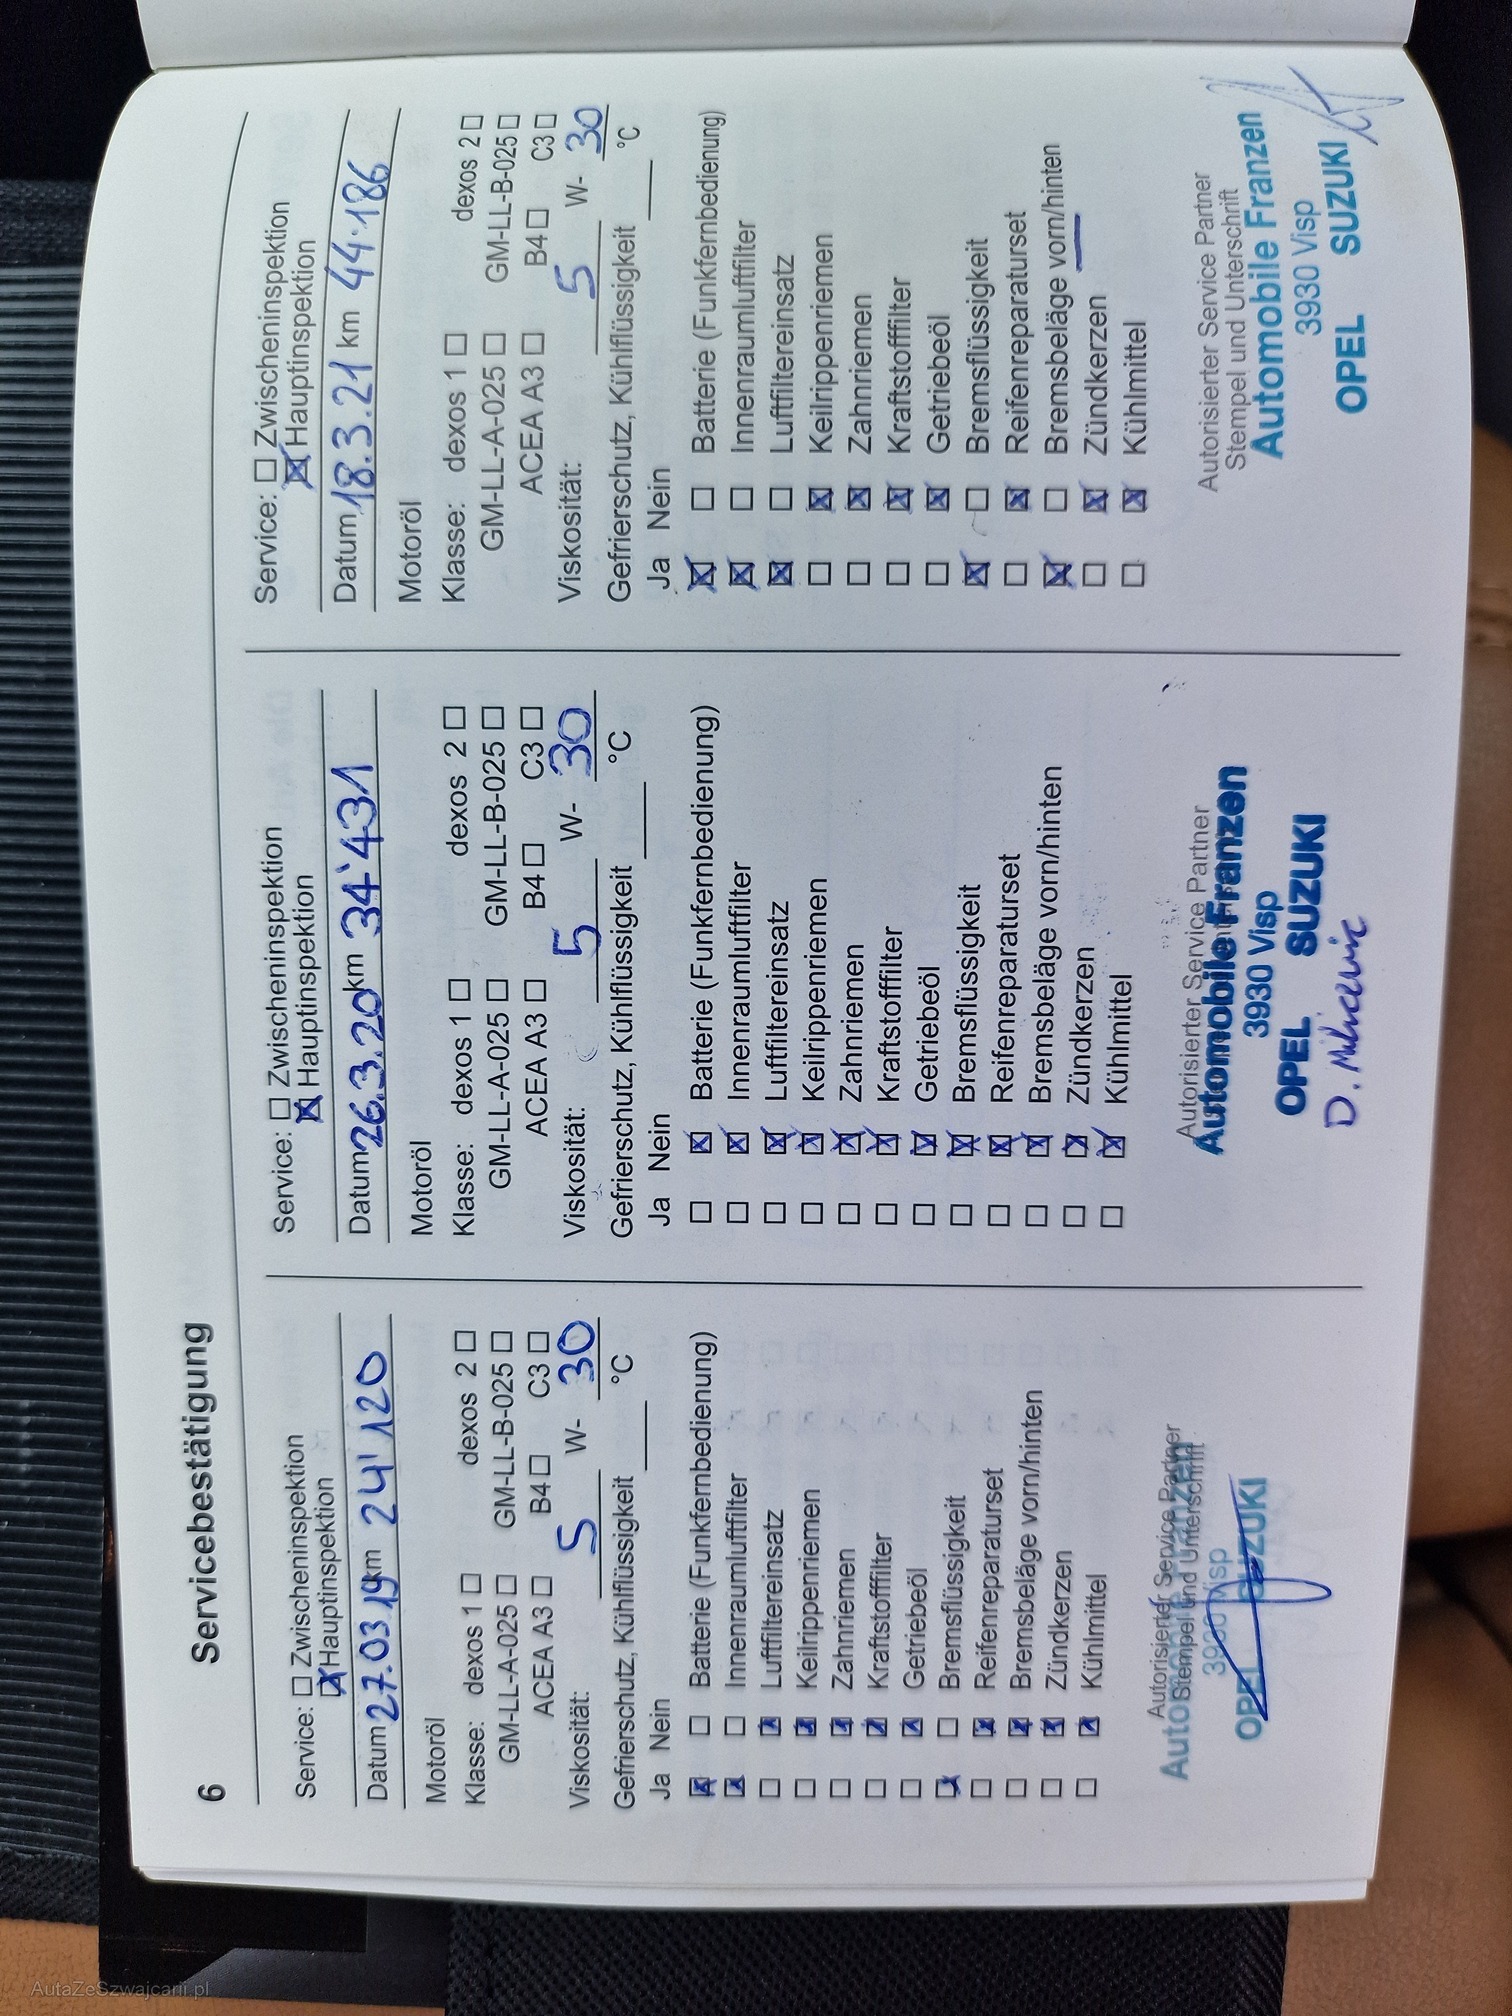 6 Servicebestätigung
Service: ☐ Zwischeninspektion
☒ Hauptinspektion
Datum 27.03.19 km 24'120
Motoröl
Klasse: dexos 1 ☐ dexos 2 ☐
GM-LL-A-025 ☐ GM-LL-B-025 ☐
ACEA A3 ☐ B4 ☐ C3 ☐
Viskosität: 5 W- 30
Gefrierschutz, Kühlflüssigkeit ____ °C
Ja Nein
☒ ☐ Batterie (Funkfernbedienung)
☒ ☐ Innenraumluftfilter
☐ ☒ Luftfiltereinsatz
☐ ☒ Keilrippenriemen
☐ ☒ Zahnriemen
☐ ☒ Kraftstofffilter
☐ ☒ Getriebeöl
☒ ☐ Bremsflüssigkeit
☐ ☒ Reifenreparaturset
☐ ☒ Bremsbeläge vorn/hinten
☐ ☒ Zündkerzen
☐ ☒ Kühlmittel
Autorisierter Service Partner
Stempel und Unterschrift
3930 Visp
OPEL SUZUKI
Service: ☐ Zwischeninspektion
☒ Hauptinspektion
Datum 26.3.20 km 34'431
Motoröl
Klasse: dexos 1 ☐ dexos 2 ☐
GM-LL-A-025 ☐ GM-LL-B-025 ☐
ACEA A3 ☐ B4 ☐ C3 ☐
Viskosität: 5 W- 30
Gefrierschutz, Kühlflüssigkeit ____ °C
Ja Nein
☐ ☒ Batterie (Funkfernbedienung)
☐ ☒ Innenraumluftfilter
☐ ☒ Luftfiltereinsatz
☐ ☒ Keilrippenriemen
☐ ☒ Zahnriemen
☐ ☒ Kraftstofffilter
☐ ☒ Getriebeöl
☐ ☒ Bremsflüssigkeit
☐ ☒ Reifenreparaturset
☐ ☒ Bremsbeläge vorn/hinten
☐ ☒ Zündkerzen
☐ ☒ Kühlmittel
Autorisierter Service Partner
Automobile Franzen
3930 Visp
OPEL SUZUKI
D.
Service: ☐ Zwischeninspektion
☒ Hauptinspektion
Datum 18.3.21 km 44.186
Motoröl
Klasse: dexos 1 ☐ dexos 2 ☐
GM-LL-A-025 ☐ GM-LL-B-025 ☐
ACEA A3 ☐ B4 ☐ C3 ☐
Viskosität: 5 W- 30
Gefrierschutz, Kühlflüssigkeit ____ °C
Ja Nein
☒ ☐ Batterie (Funkfernbedienung)
☒ ☐ Innenraumluftfilter
☒ ☐ Luftfiltereinsatz
☐ ☒ Keilrippenriemen
☐ ☒ Zahnriemen
☐ ☒ Kraftstofffilter
☐ ☒ Getriebeöl
☒ ☐ Bremsflüssigkeit
☐ ☒ Reifenreparaturset
☒ ☐ Bremsbeläge vorn/hinten
☐ ☒ Zündkerzen
☐ ☒ Kühlmittel
Autorisierter Service Partner
Stempel und Unterschrift
Automobile Franzen
3930 Visp
OPEL SUZUKI
AutaZeSzwajcarii.pl